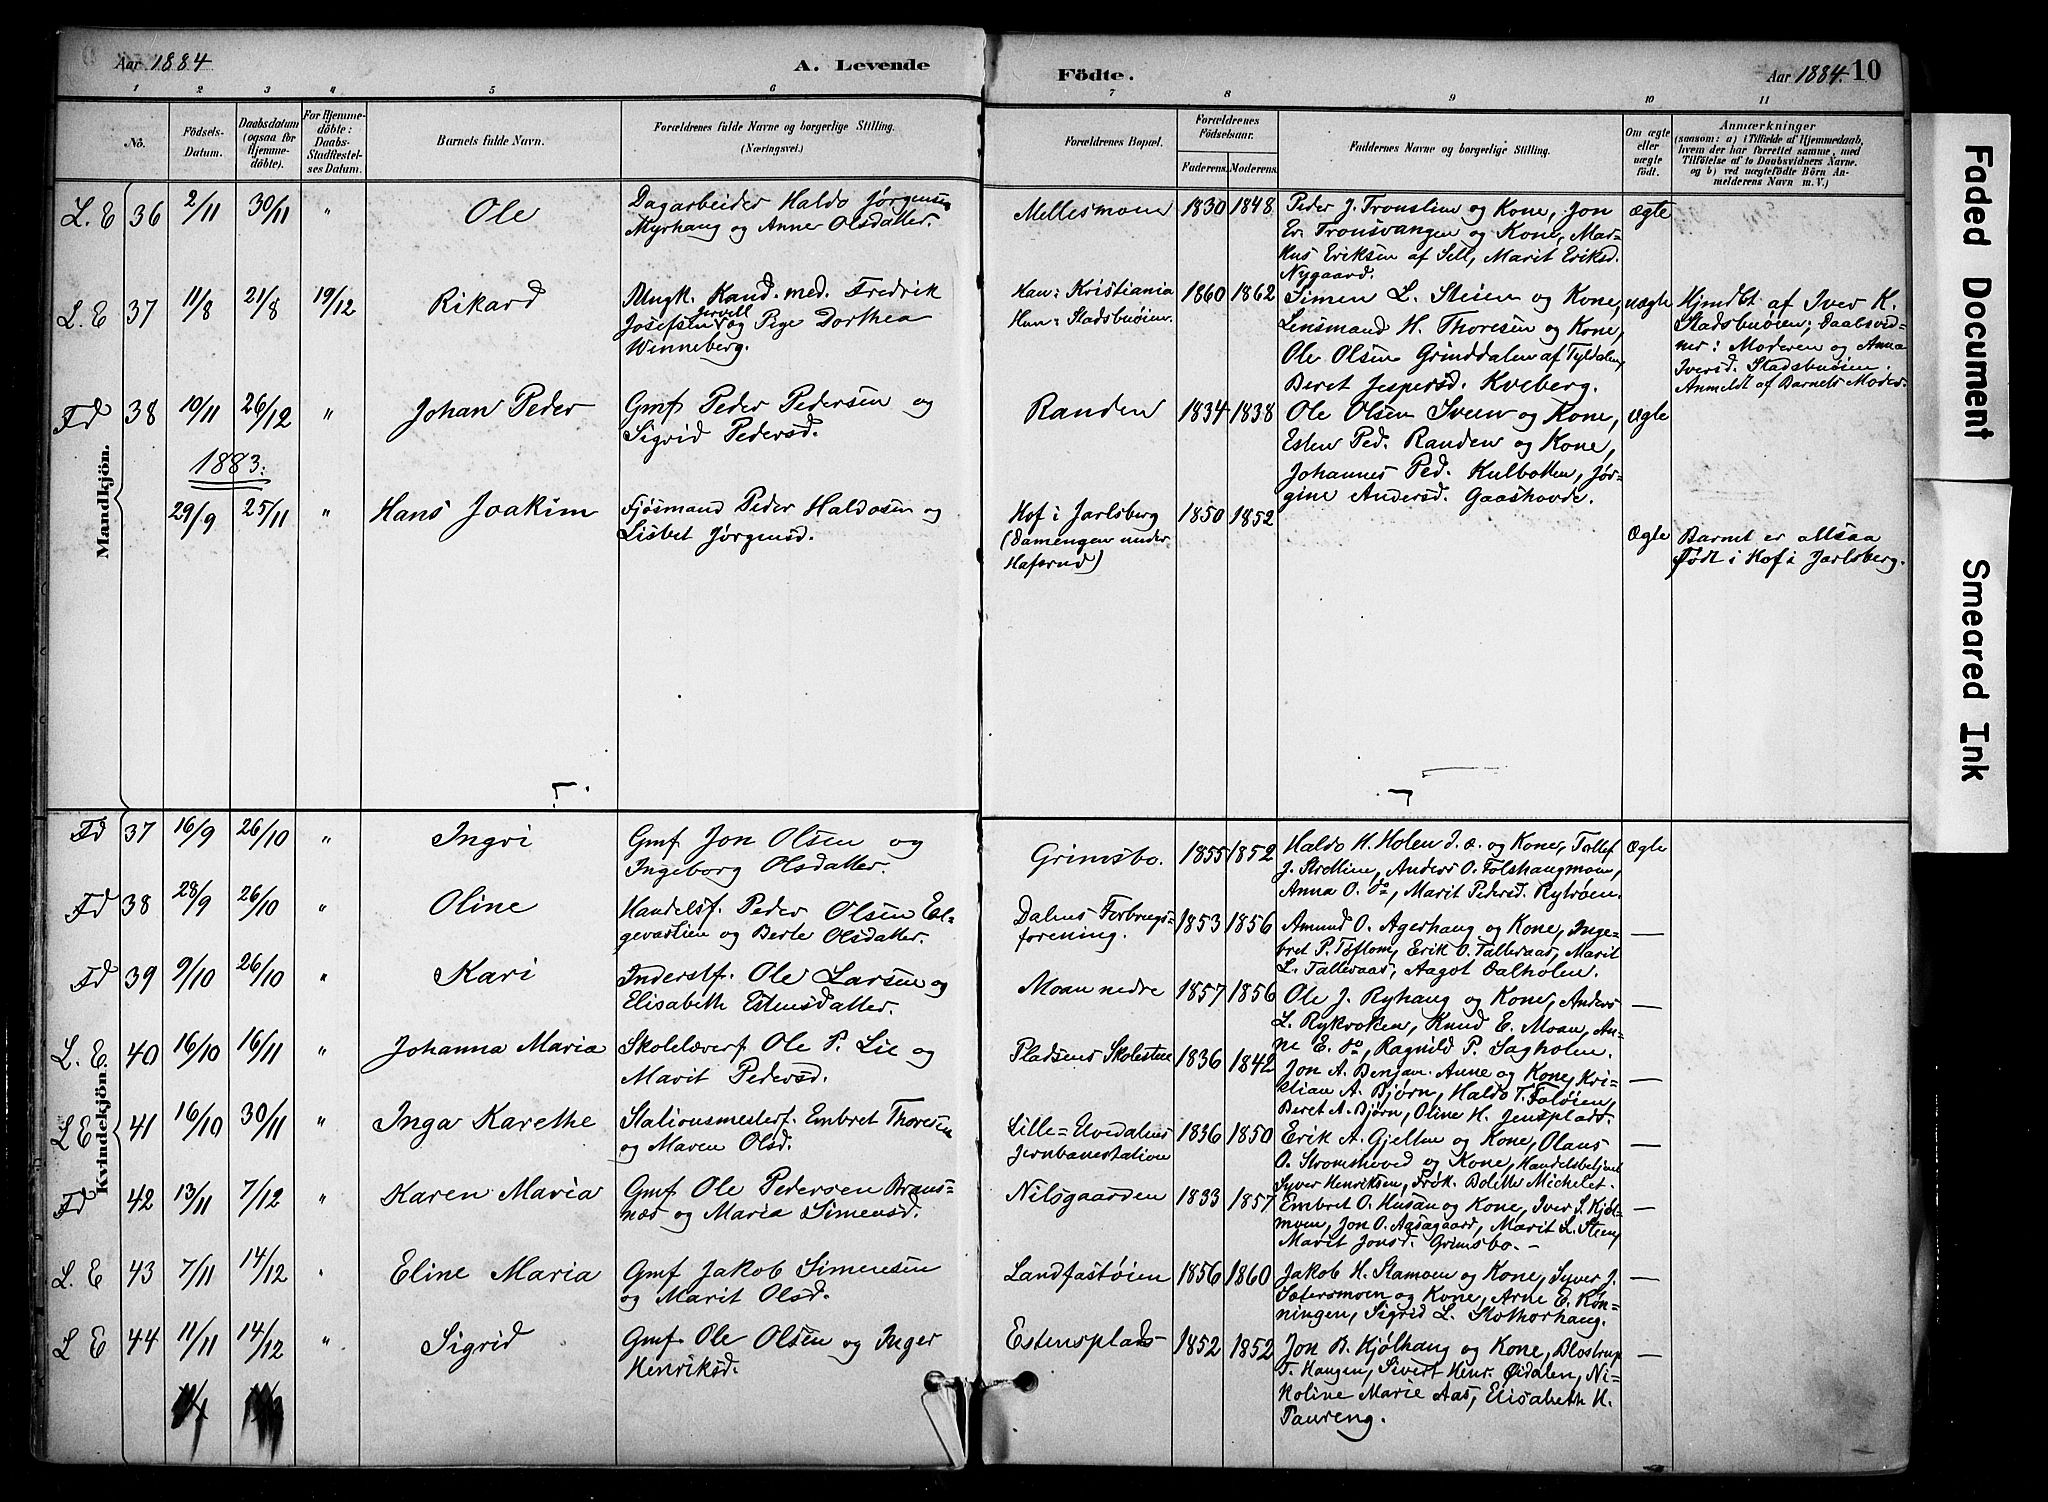 Aar 1884
A. Levende
1 2 3 4 5 6
No.
Födsels-
Datum.
Daabsdatum
(ogsaa for
Hjemme-
döbte).
For Hjemme-
döbte:
Daabs-
Stadfæstel-
ses Datum.
Barnets fulde Navn.
Forældrenes fulde Navne og borgerlige Stilling.
(Næringsvei.)
Födte.
Aar 1884. 10
7 8 9 10 11
Forældrenes Bopæl.
Forældrenes
Födselsaar.
Faderens. Moderens.
Faddernes Navne og borgerlige Stilling.
Om ægte
eller
uægte
födt.
Anmærkninger
(saasom: a) i Tilfælde af Hjemmedaab,
hvem der har forrettet samme, med
Tilföielse af to Daabsvidners Navne.
og b) ved uægtefödte Börn An-
melderens Navn m. V.)
Mandkjön.
L. E 36 2/11 30/11 " Ole
Dagarbeider Haldo Jørgensen
Myrhaug og Anne Olsdatter.
Mellesmoen 1830 1848
Peder J. Tronslien og Kone, Jon
Er. Tronsvangen og Kone, Mar-
kus Eriksen af Sell, Marit Eriksd.
Nygaard.
Ægte
L. E 37 11/8 21/8 19/12 Rikard
Ungk. Kand. med. Fredrik
Josefsen Jervell og Pige Dorthea
Winneberg.
Han: Kristiania
Hun: Stadsbuøien.
1860 1862
Simen L. Steien og Kone,
Lensmand H. Thoresen og Kone,
Ole Olsen Grinddalen af Tyldalen,
Beret Jespersd. Kveberg.
uægte
Hjmdbt af Iver K.
Stadsbuøien; Daabsvid-
ner: Moderen og Anna
Iversd. Stadsbuøien.
Anmeldt af Barnets Moder.
Fd 38 10/11 26/12 " Johan Peder
Gmf Peder Pedersen og
Sigrid Pedersd.
Randen 1834 1838
Ole Olsen Sveen og Kone,
Esten Ped. Randen og Kone,
Johannes Ped. Kulbotten, Jør-
gine Andersd. Gaashovde.
Ægte
1883:
29/9 25/11 " Hans Joakim
Fjøsmand Peder Haldosen og
Lisbet Jørgensd.
Hof i Jarlsberg
(Damengen under
Hafsrud)
1850 1852
Ægte
Barnet er altsaa
Født i Hof i Jarlsberg.
Kvindekjön.
Fd 37 16/9 26/10 " Ingri
Gmf Jon Olsen og
Ingeborg Olsdatter.
Grimsbo. 1855 1852
Haldo H. Holen d. æ. og Kone, Tollef
J. Stedlien, Anders O. Folshaugmoen,
Anna O. do, Marit Pedersd. Rytrøen.
Ægte
Fd 38 28/9 26/10 " Oline
Handelsf. Peder Olsen El-
gevarlien og Berte Olsdatter.
Dalens Forbrugs-
forening.
1853 1856
Amund O. Agerhaug og Kone, Inge-
bret P. Toflom, Erik O. Tallevaas, Marit
L. Tallevaas, Aagot Dalholen.
—
Fd 39 9/10 26/10 " Kari
Inderstf. Ole Larsen og
Elisabeth Estensdatter.
Moan nedre 1857 1856
Ole J. Ryhaug og Kone, Anders
L. Rykroken, Knud E. Moan, An-
ne E. do, Ragnild P. Sagholen.
—
L. E. 40 16/10 16/11 " Johanna Maria
Skolelærerf Ole P. Lie og
Marit Pedersd.
Pladsens Skolestue 1836 1842
Jon A. Benjam. Anne og Kone, Kri-
stian A. Bjørn, Haldo T. Foløien,
Beret A. Bjørn, Oline H. Jensplads.
—
L E 41 16/10 30/11 " Inga Karethe
Stationsmesterf. Embret Thoresen
og Maren Olsd.
Lille-Elvedalens
Jernbanestation
1836 1850
Erik A. Gjelten og Kone, Olaus
O. Stromshoved og Kone, Handelsbetjent
Syver Henriksen, Frøk. Bolette Michelet.
—
Fd 42 13/11 7/12 " Karen Maria
Gmf Ole Pedersen Brans-
næs og Maria Simensd.
Nilsgaarden 1833 1857
Embret O. Husan og Kone, Iver S. Kjøl-
moen, Jon O. Aasagaard, Marit L. Steen,
Marit Jonsd. Grimsbo. -
—
L. E 43 7/11 14/12 " Eline Maria
Gmf Jakob Simensen
og Marit Olsd.
Landfastøien 1856 1860
Jakob H. Stamoen og Kone, Syver J.
Sætersmoen og Kone, Arne E. Røn-
ningen, Sigrid L. Stothorhaug.
—
L E 44 11/11 14/12 " Sigrid
Gmf. Ole Olsen og Inger
Henriksd.
Estensplads 1852 1852
Jon B. Kjølhaug og Kone, Blostrup
T. Haugen, Sivert Henr. Øidalen, Ni-
koline Marie Aas, Elisabeth H.
Paureng.
—
Faded Document
Smeared Ink